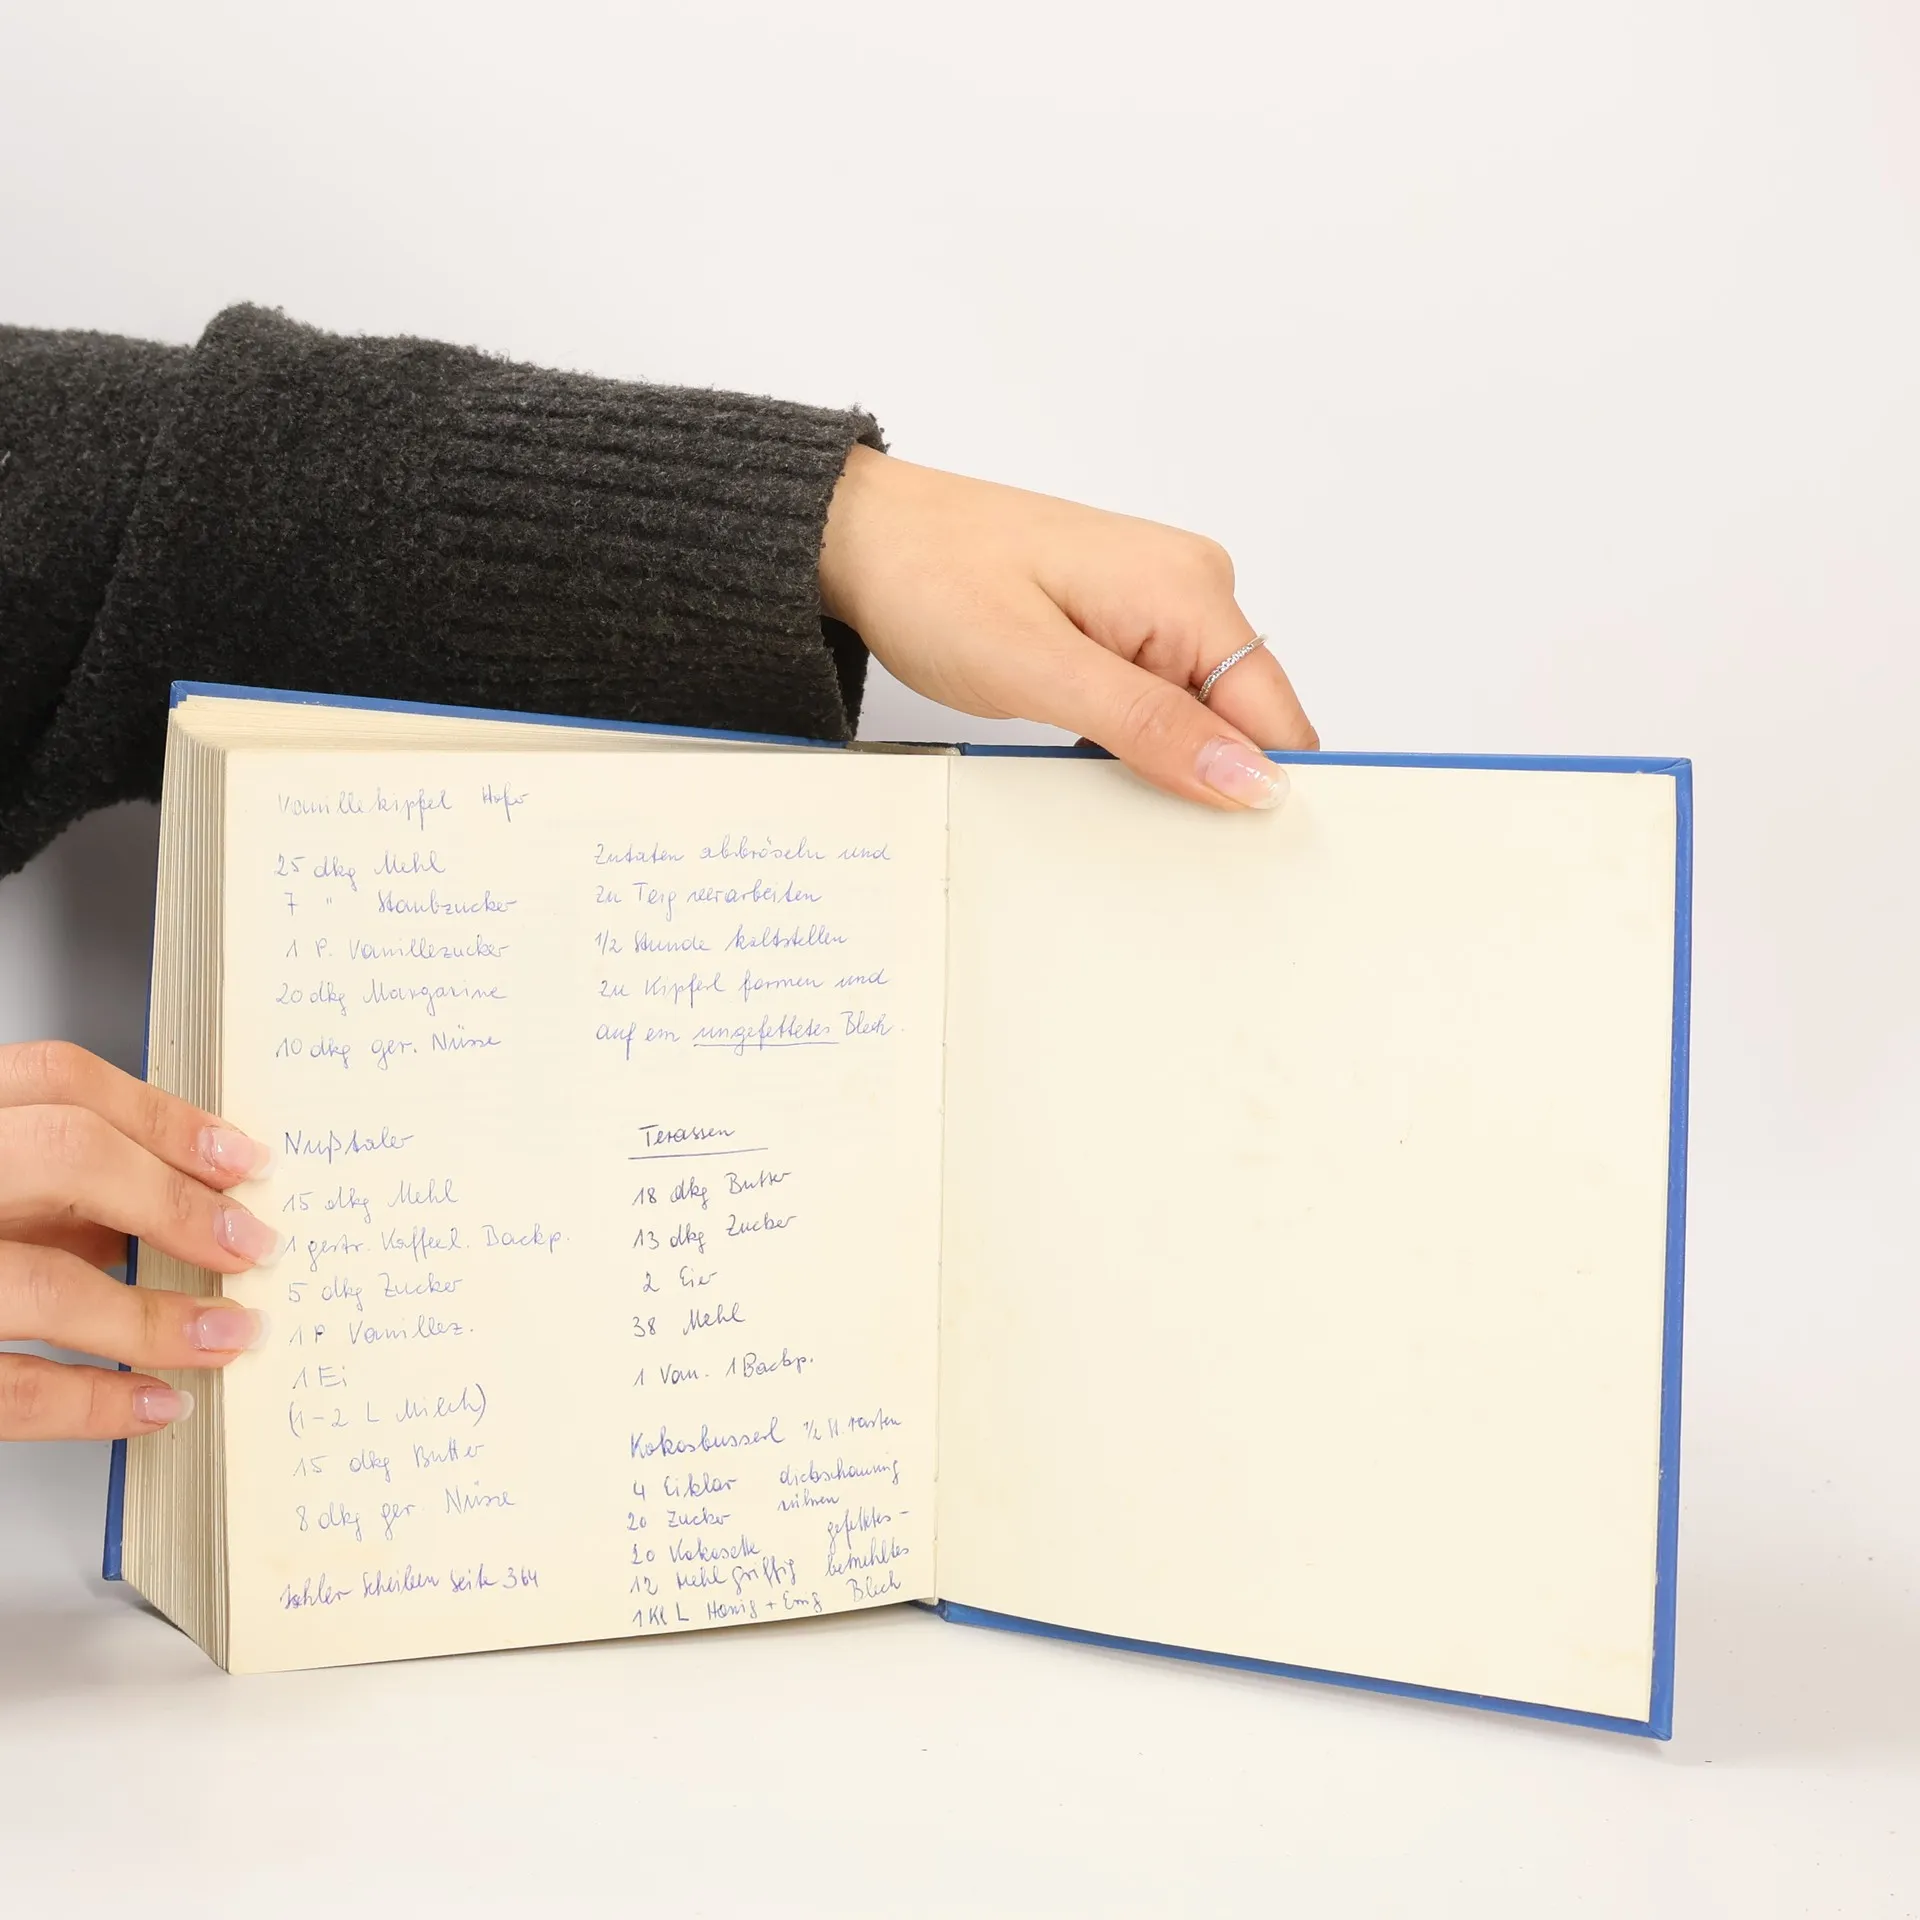 Vanillekipferl Hofer
25 dkg Mehl
7 " Staubzucker
1 P. Vanillezucker
20 dkg Margarine
10 dkg ger. Nüsse
Zutaten abbröseln und
zu Teig verarbeiten
1/2 Stunde kaltstellen
zu Kipferl formen und
auf ein ungefettetes Blech.
Nußtaler
15 dkg Mehl
1 gestr. Kaffeel. Backp.
5 dkg Zucker
1 P Vanillez.
1 Ei
(1-2 L Milch)
15 dkg Butter
8 dkg ger. Nüsse
Scheiben Seite 364
Terassen
18 dkg Butter
13 dkg Zucker
2 Eier
38 Mehl
1 Van. 1 Backp.
Kokosbusserl 1/2 H. rasten
4 Eiklar dickschaumig
rühren
20 Zucker
20 Kokosette gefettetes-
12 Mehl Griffig bemehltes
1 Kl L Honig + Essig Blech